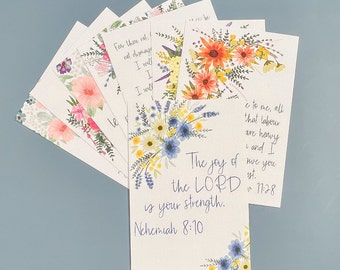 For thou
I will
I will
I will
to me, all
that labour
are heavy
and I
give you
rest.
11:28
The joy of
the LORD
is your strength.
Nehemiah 8:10